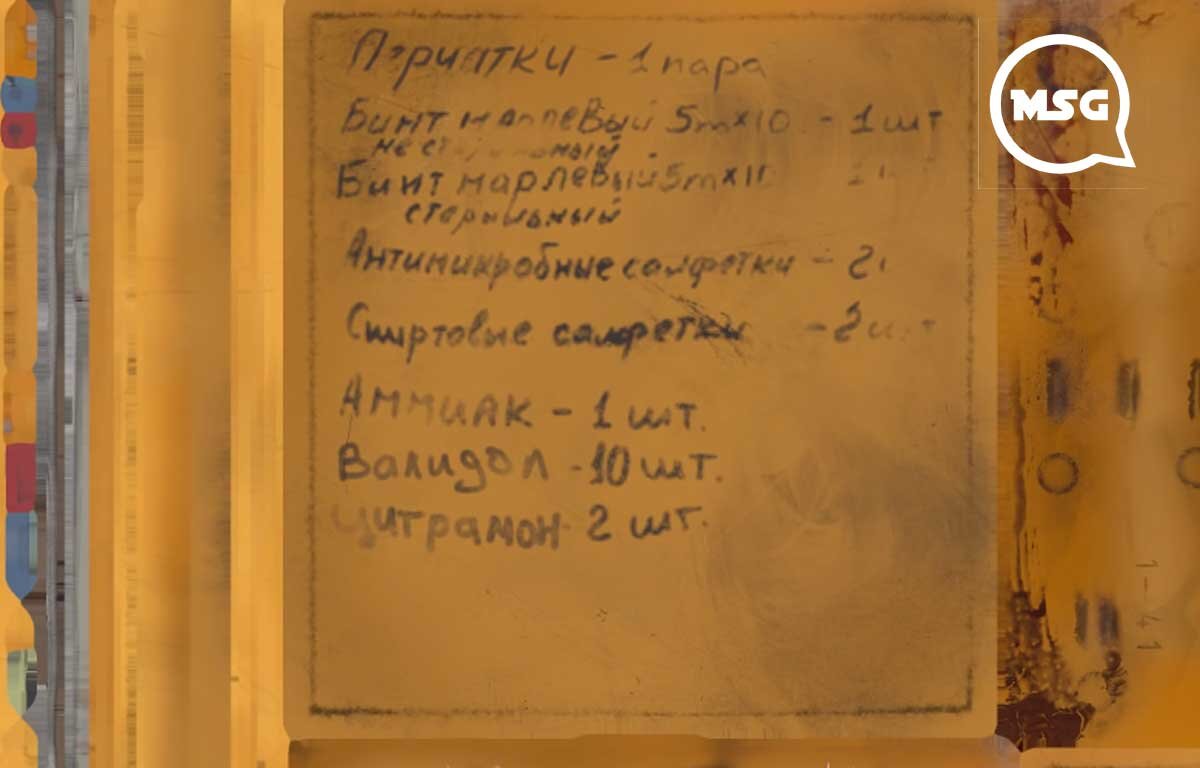 Перчатки - 1 пара
MSG
Бинт марлевый 5m×10 - 1 шт
не стерильный
Бинт марлевый 5m×1
стерильный
Антимикробные салфетки - 2
Спиртовые салфетки - 2 шт
Аммиак - 1 шт.
Валидол - 10 шт.
Цитрамон - 2 шт.
1-41